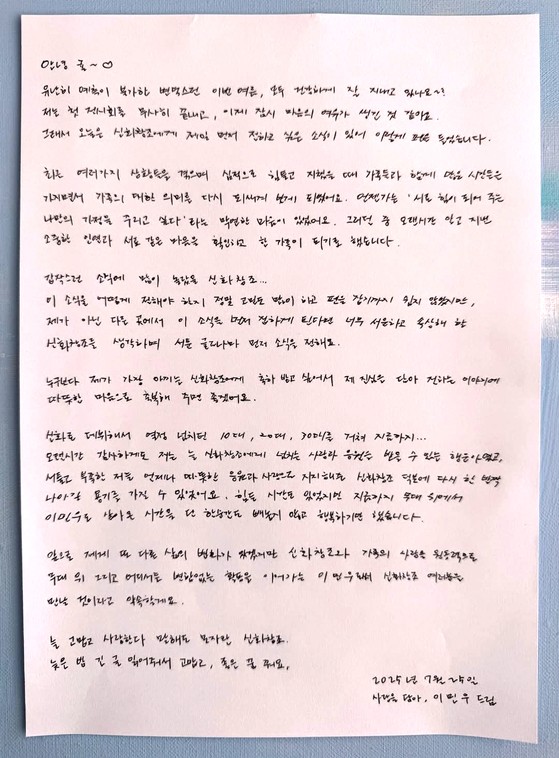 안녕 귤~♡
유난히 예측이 불가한 변덕스런 이번 여름, 모두 건강하게 잘 지내고 있나요~?
저는 첫 전시회를 무사히 끝내고, 이제 잠시 마음의 여유가 생긴 것 같아요.
그래서 오늘은 신화창조에게 제일 먼저 전하고 싶은 소식이 있어 이렇게 펜을 들었습니다.
최근 여러가지 상황들을 겪으며 심적으로 힘들고 지쳤을 때 가족들과 함께 많은 시간들을
가지면서 가족의 대한 의미를 다시 되새겨 보게 되었어요. 언젠가는 '서로 힘이 되어 주는
나만의 가정을 꾸리고 싶다'라는 막연한 마음이 있었어요. 그러던 중 오랜시간 알고 지낸
소중한 인연과 서로 같은 마음을 확인하고 한 가족이 되기로 했습니다.
갑작스런 소식에 많이 놀랐을 신화창조...
이 소식을 어떻게 전해야 하지 정말 고민도 많이 하고 펜을 잡기까지 쉽지 않았지만,
제가 아닌 다른 곳에서 이 소식을 먼저 전하게 된다면 너무 서운하고 속상해 할
신화창조를 생각하며 서툰 글로나마 먼저 소식을 전해요.
누구보다 제가 가장 아끼는 신화창조에게 축하 받고 싶어서 제 진심을 담아 전하는 이야기에
따뜻한 마음으로 축복해 주면 좋겠어요.
신화로 데뷔해서 열정 넘치던 10대, 20대, 30대를 거쳐 지금까지...
오랜시간 감사하게도 저는 늘 신화창조에게 넘치는 사랑과 응원을 받을 수 있는 행운아였고,
서툴고 부족한 저를 언제나 따뜻한 응원과 사랑으로 지지해주는 신화창조 덕분에 다시 한 번
나아갈 용기를 가질 수 있었어요. 힘든 시간도 있었지만 지금까지 무대 위에서
이민우로 살아온 시간을 단 한순간도 빼놓지 않고 행복하기만 했습니다.
앞으로 제게 또 다른 삶의 변화가 생겼지만 신화창조와 가족의 사랑을 원동력으로
무대 위 그리고 어디서든 변함없는 활동을 이어가는 이민우로 신화창조 여러분을
만날 것이라고 약속할게요.
늘 고맙고 사랑한다 말해도 모자란 신화창조.
늦은 밤 긴 글 읽어주셔서 고맙고, 좋은 꿈 꿔요,
2025년 7월 25일
사랑을 담아, 이민우 드림